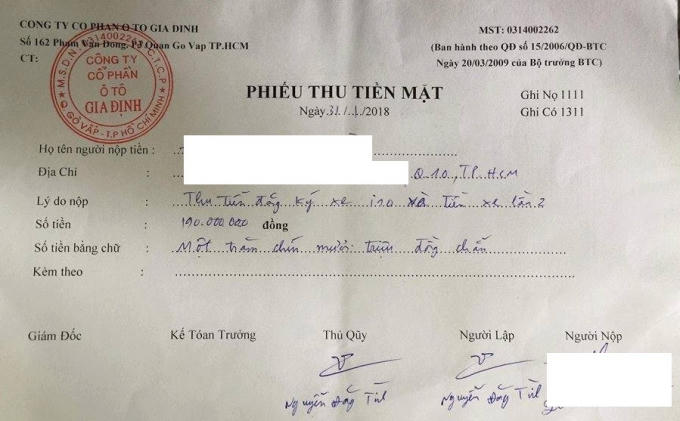 CÔNG TY CỔ PHẦN Ô TÔ GIA ĐỊNH
Số 162 Phạm Văn Đồng, P3 Quận Gò Vấp TP.HCM
CT:
MST: 0314002262
(Ban hành theo QĐ số 15/2006/QĐ-BTC
Ngày 20/03/2009 của Bộ trưởng BTC)
M.S.D.N: 0314002262 C.T.C.P
CÔNG TY
CỔ PHẦN
Ô TÔ
GIA ĐỊNH
Q. GÒ VẤP - T.P HỒ CHÍ MINH
PHIẾU THU TIỀN MẶT
Ngày 31/1/2018
Ghi Nợ 1111
Ghi Có 1311
Họ tên người nộp tiền :
Địa Chỉ : Q10, TP. HCM
Lý do nộp : Thu tiền đăng ký xe i10 và tiền xe lần 2
Số tiền : 190.000.000 đồng
Số tiền bằng chữ : Một trăm chín mươi triệu đồng chẵn
Kèm theo :
Giám Đốc Kế Tóan Trưởng Thủ Qũy Người Lập Người Nộp
Nguyễn Đăng Nguyễn Đăng